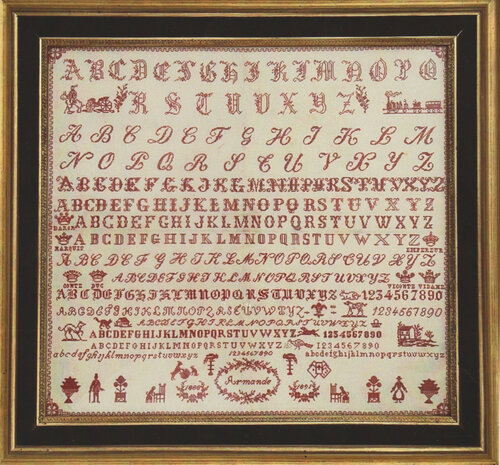 A B C D E F G H I K L M N O P Q
R S T U V X Y Z
A B C D E F G H I K L M
N O P Q R S T U V X Y Z
A B C D E F G H I J K L M N O P Q R S T U V X Y Z
A B C D E F G H I J K L M N O P Q R S T U V X Y Z
BARON
A B C D E F G H I J K L M N O P Q R S T U V W X Y Z
MARQUIS EMPEREUR
A B C D E F G H I J K L M N O P Q R S T U V X Y Z
COMTE DUC A B C D E F G H I J K L M N O P Q R S T U V X Y Z VICOMTE VIDAME
A B C D E F G H I J K L M N O P Q R S T U V X Y Z 1 2 3 4 5 6 7 8 9 0
A B C D E F G H I J K L M N O P Q R S T U V W X Y Z 1 2 3 4 5 6 7 8 9 0
A B C D E F G H I J K L M N O P Q R S T U V W X Y Z
A B C D E F G H I J K L M N O P Q R S T U V W X Y Z 1 2 3 4 5 6 7 8 9 0
A B C D E F G H I J K L M N O P Q R S T U V W X Y Z
a b c d e f g h i j k l m n o p q r s t u v w x y z 1 2 3 4 5 6 7 8 9 0 a b c d e f g h i j k l m n o p q r s t u v w x y z
Armande